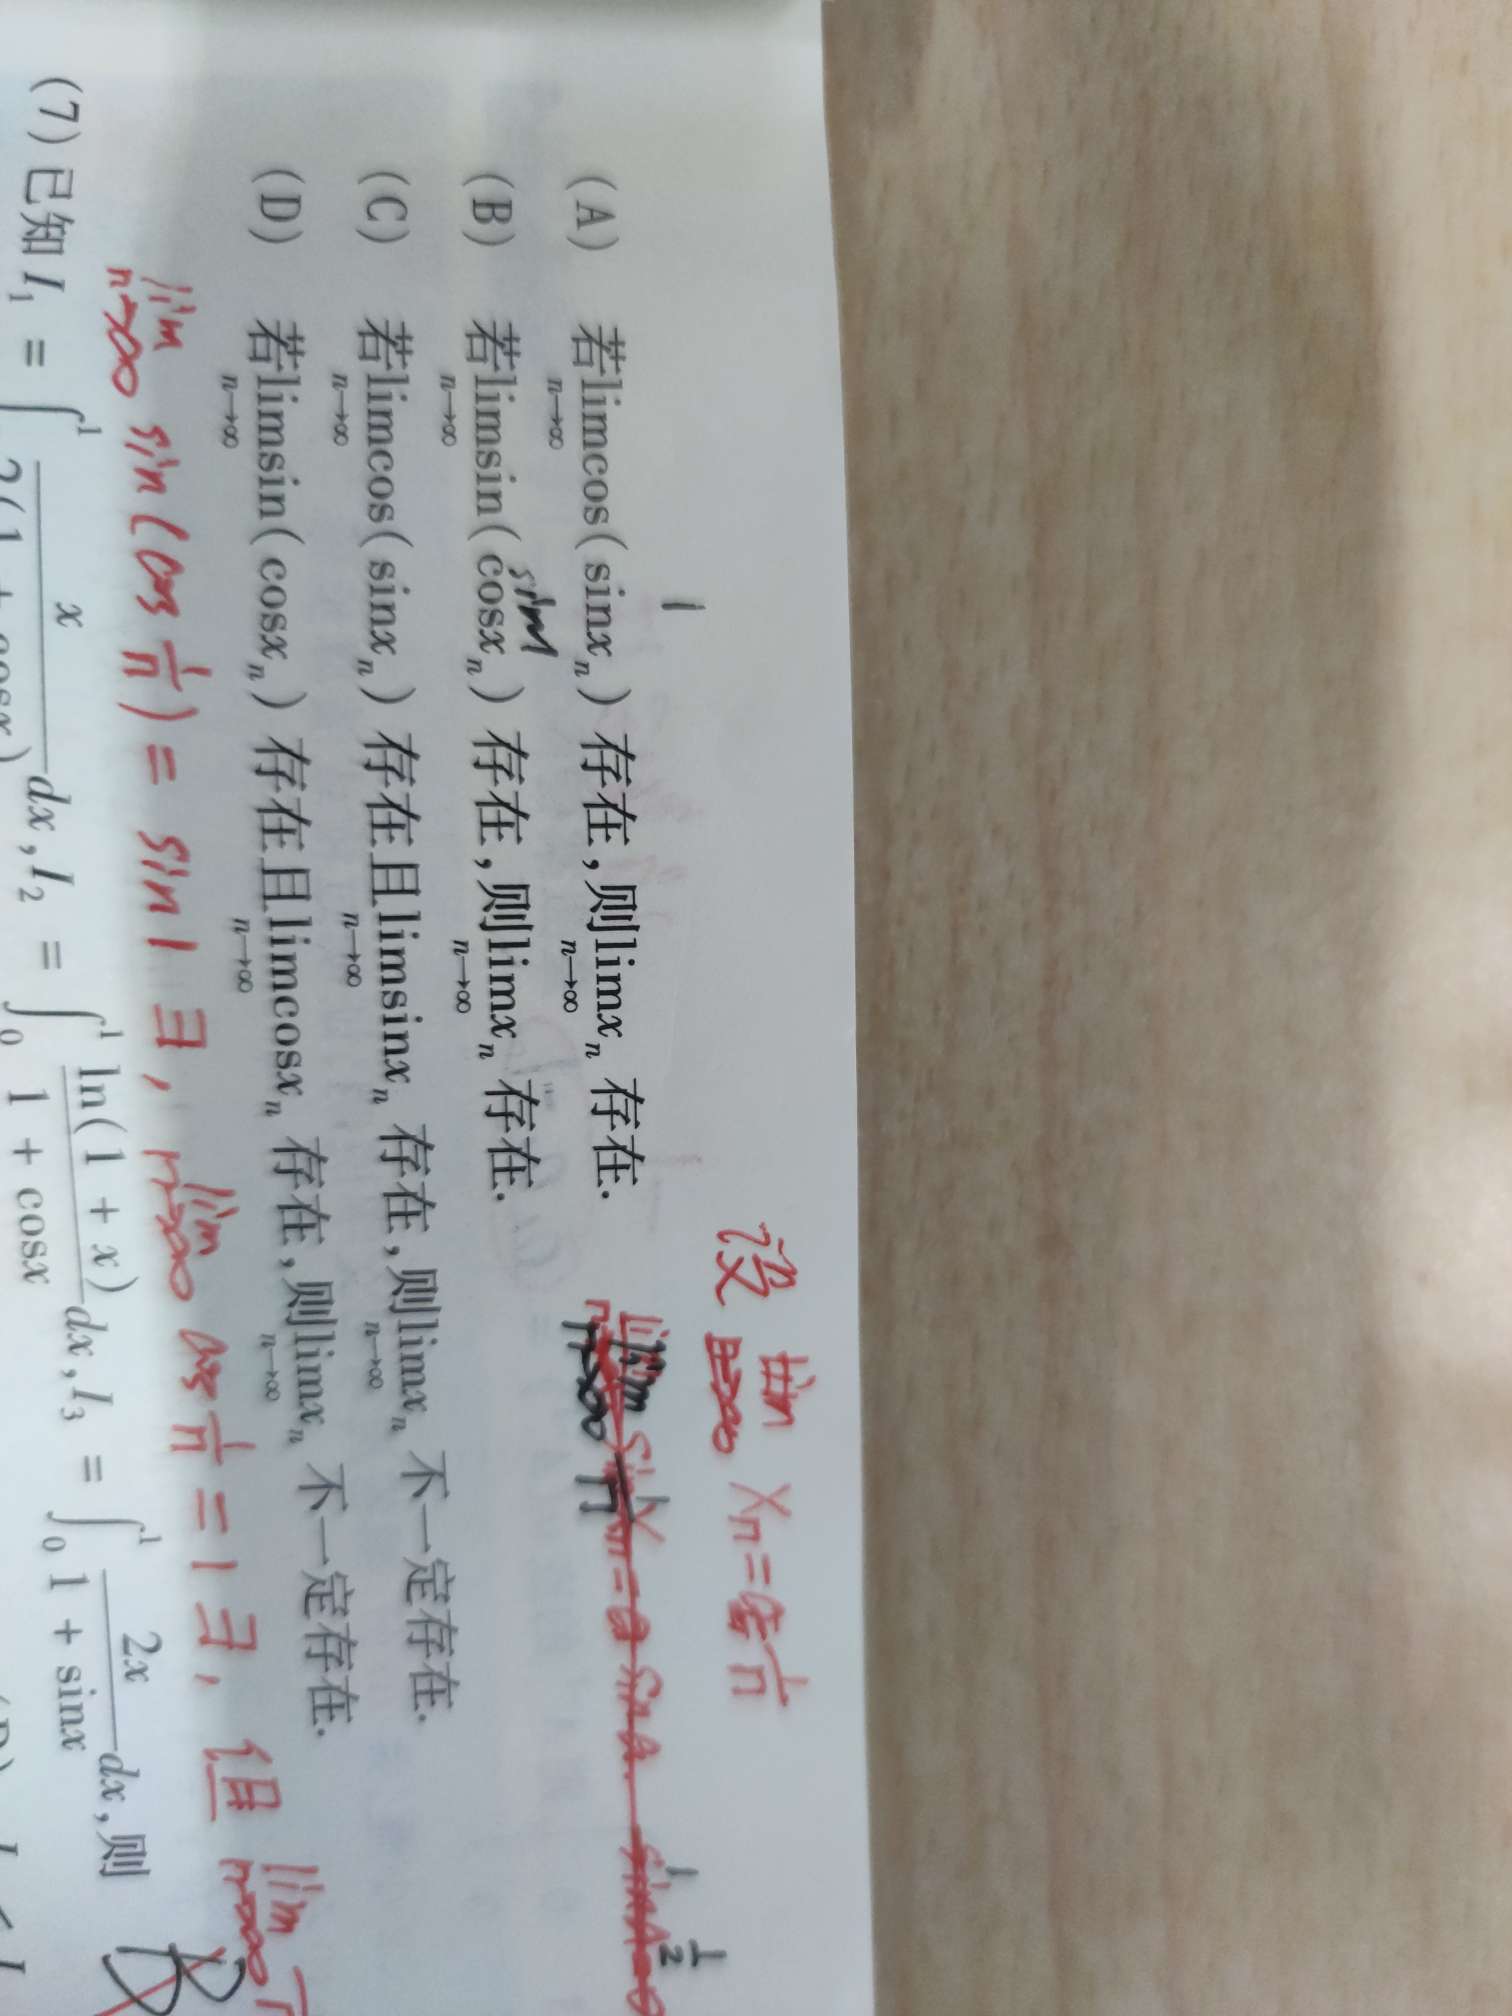 1
设 lim n→∞ xₙ = 1/n
(A) 若lim n→∞ cos(sinxₙ) 存在,则lim n→∞ xₙ 存在.
sin
(B) 若lim n→∞ sin(cosxₙ) 存在,则lim n→∞ xₙ 存在.
(C) 若lim n→∞ cos(sinxₙ) 存在且lim n→∞ sinxₙ 存在,则lim n→∞ xₙ 不一定存在.
(D) 若lim n→∞ sin(cosxₙ) 存在且lim n→∞ cosxₙ 存在,则lim n→∞ xₙ 不一定存在.
lim n→∞ sin(cos 1/n) = sin1 ∃, lim n→∞ cos 1/n = 1 ∃, 但 lim n→∞
(7) 已知 I₁ = ∫ ¹ x / 2(1 + cosx) dx, I₂ = ∫₀¹ ln(1 + x) / 1 + cosx dx, I₃ = ∫₀¹ 2x / 1 + sinx dx,则